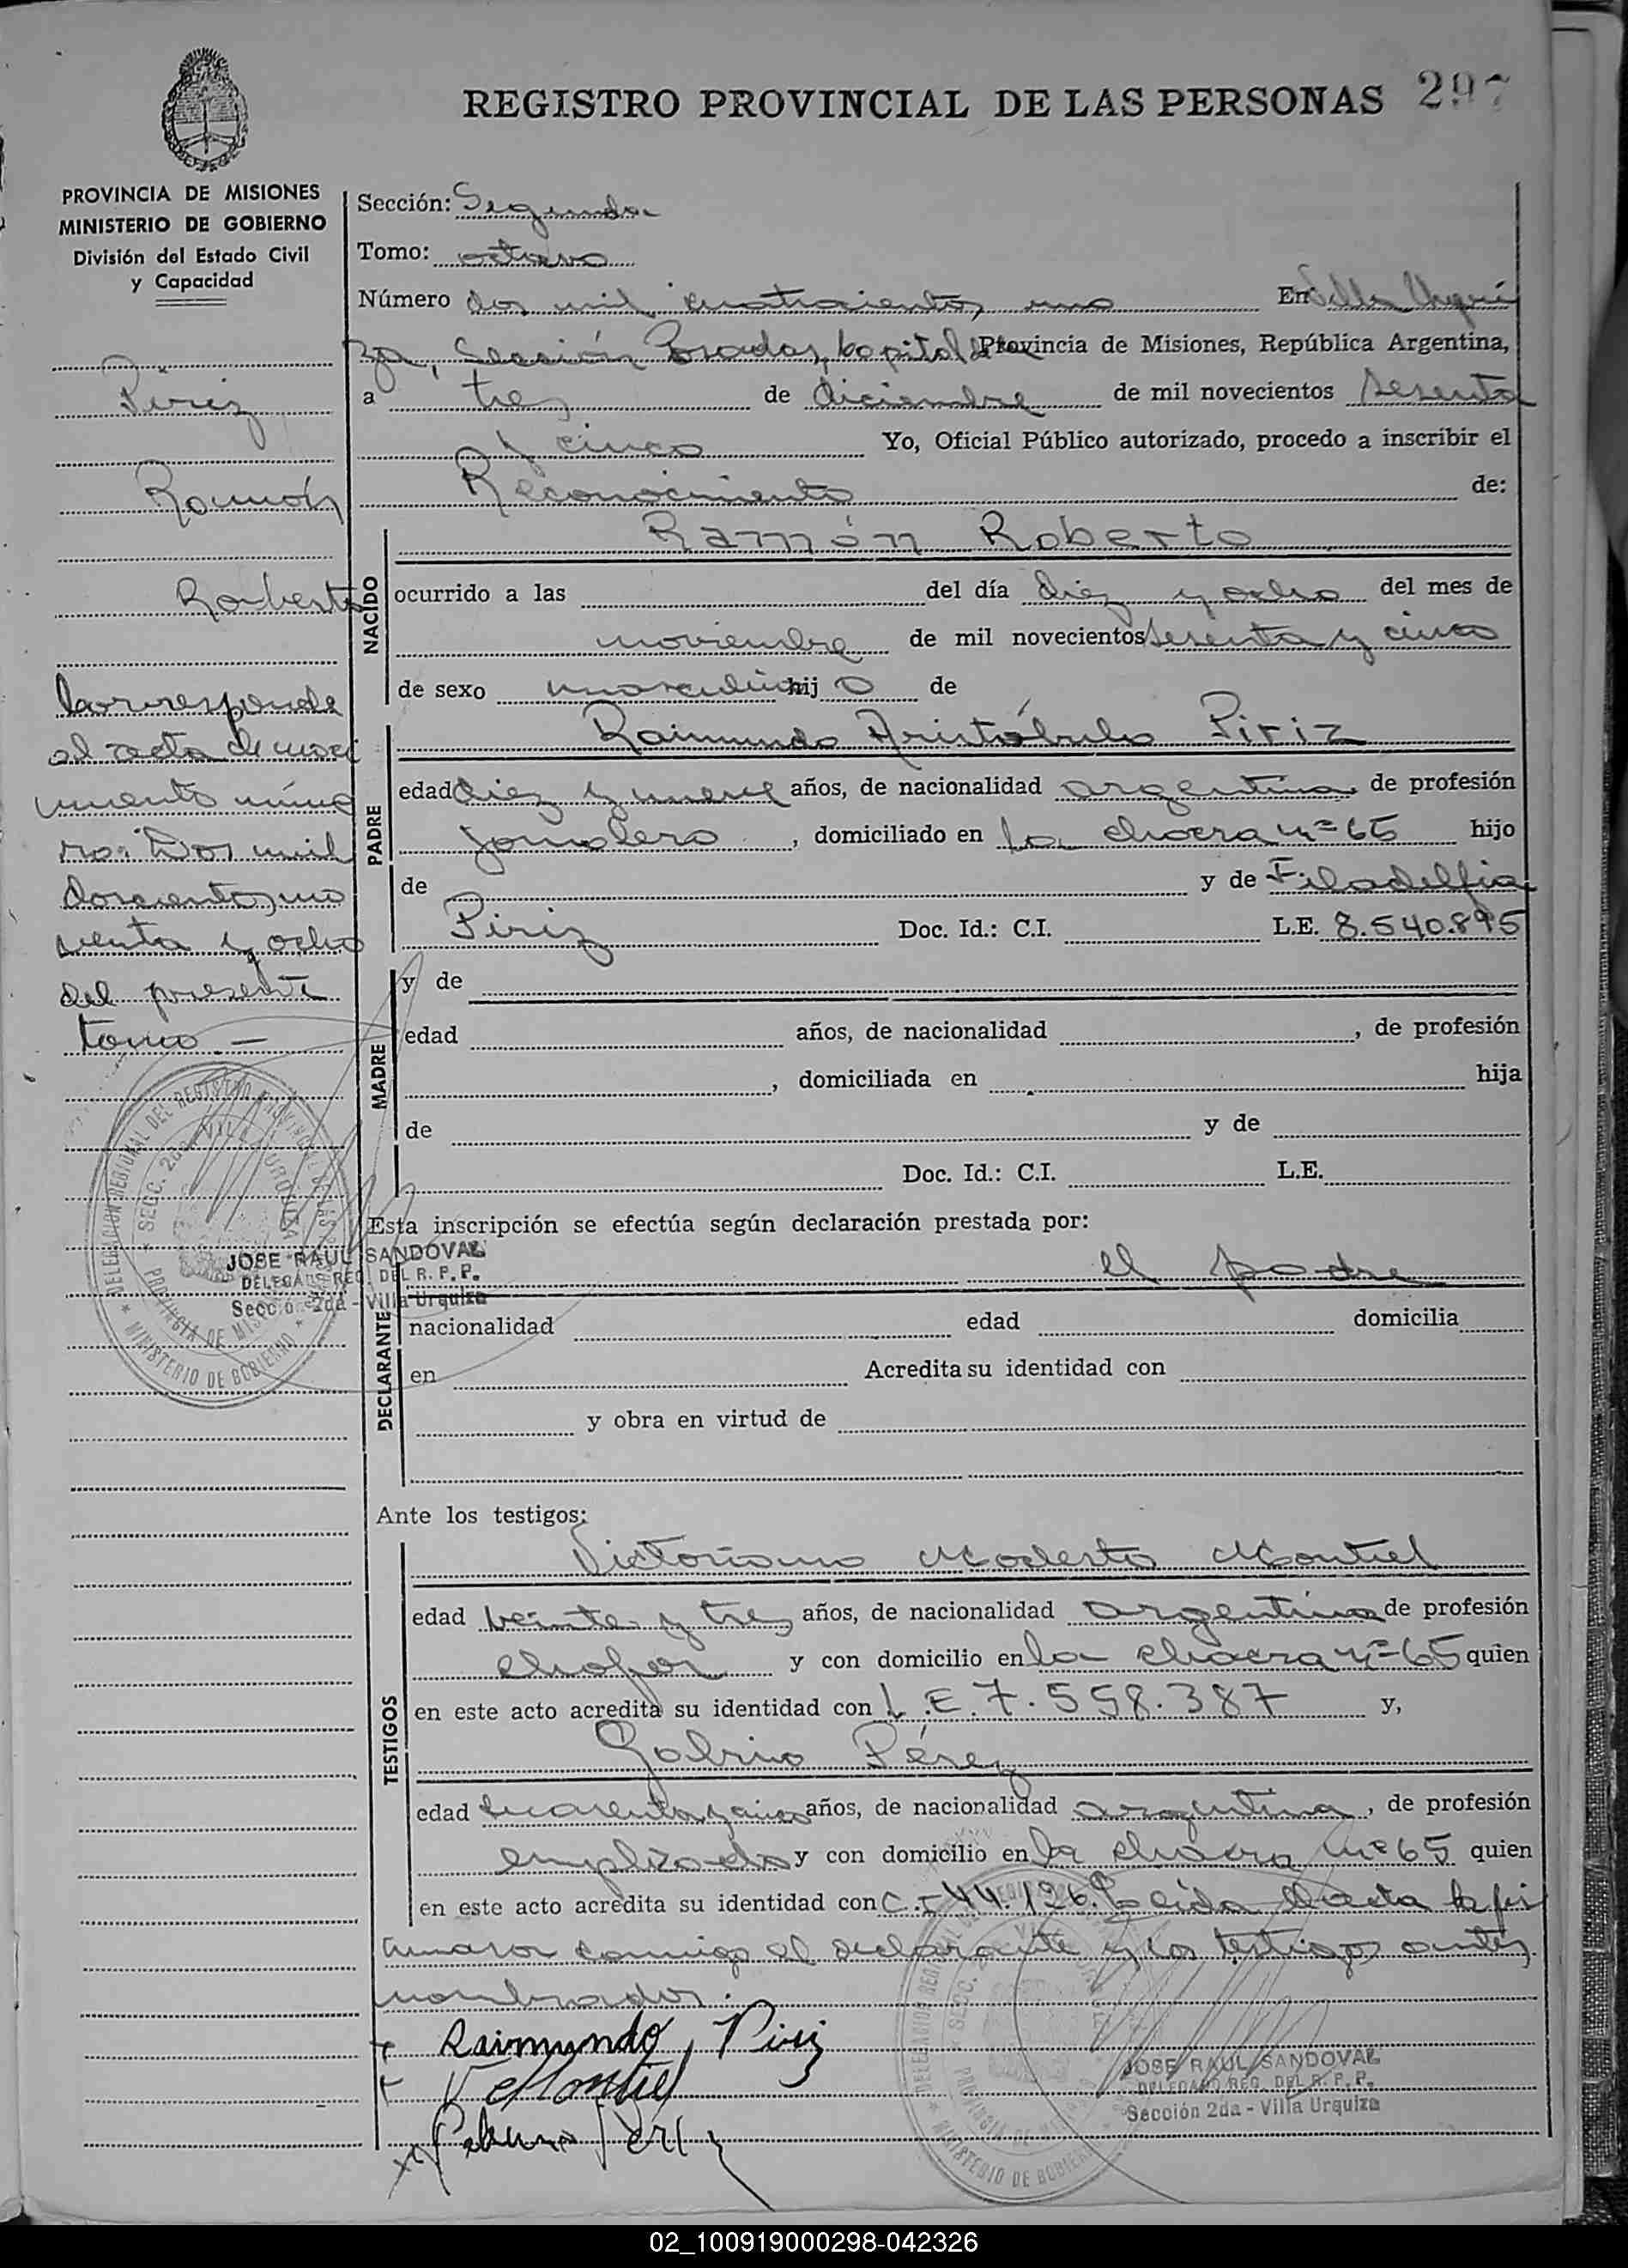 REGISTRO PROVINCIAL DE LAS PERSONAS 297
PROVINCIA DE MISIONES
MINISTERIO DE GOBIERNO
División del Estado Civil
y Capacidad
Piriz
Ramón
Roberto
Corresponde
al acta de naci
miento núme
ro: Dos mil
doscientos no
venta y ocho
del presente
tomo.-
DELEGACION REGIONAL DEL REGISTRO PROVINCIAL DE LAS PERSONAS
SECC. 2da VILLA URQUIZA
PROVINCIA DE MISIONES
MINISTERIO DE GOBIERNO
JOSE RAUL SANDOVAL
DELEGADO REG. DEL R. P. P.
Sección 2da - Villa Urquiza
Sección: Segunda
Tomo: octavo
Número dos mil cuatrocientos uno En Villa Urqui
za, Sección Posadas, Capital Provincia de Misiones, República Argentina,
a tres de diciembre de mil novecientos sesenta
y cinco Yo, Oficial Público autorizado, procedo a inscribir el
Reconocimiento de:
NACIDO
Ramón Roberto
ocurrido a las del día diez y ocho del mes de
noviembre de mil novecientos sesenta y cinco
de sexo masculino hijo de
PADRE
Raimundo Aristóbulo Piriz
edad diez y nueve años, de nacionalidad argentina, de profesión
jornalero, domiciliado en la chacra nº 65 hijo
de y de Filadelfia
Piriz Doc. Id.: C.I. L.E. 8.540.895
MADRE
y de
edad años, de nacionalidad , de profesión
, domiciliada en hija
de y de
Doc. Id.: C.I. L.E.
Esta inscripción se efectúa según declaración prestada por:
el padre
DECLARANTE
nacionalidad edad domicilia
en Acredita su identidad con
y obra en virtud de
Ante los testigos:
TESTIGOS
Victoriano Modesto Montiel
edad veinte y tres años, de nacionalidad argentina de profesión
chofer y con domicilio en la chacra nº 65 quien
en este acto acredita su identidad con L.E. 7.558.387 y,
Gabino Pérez
edad cuarenta y cinco años, de nacionalidad argentina, de profesión
empleado y con domicilio en la chacra nº 65 quien
en este acto acredita su identidad con C.I 44.126. Leida el acta la fir
maron conmigo el declarante y los testigos antes
nombrados.
Raimundo Piriz
V Montiel
Gabino Pérez
DELEGACION REGIONAL
SECC. 2da VILLA URQUIZA
PROVINCIA DE MISIONES
MINISTERIO DE GOBIERNO
JOSE RAUL SANDOVAL
DELEGADO REG. DEL R. P. P.
Sección 2da - Villa Urquiza
02_100919000298-042326